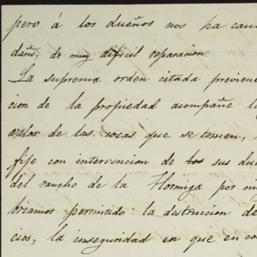 pero á los dueños nos ha cau
daño, de muy dificil reparacion.
La suprema orden citada previene
cion de la propiedad acompañe l
valor de las cosas que se tomen,
fije con intervencion de sus du
del rancho de la Hormiga por
briamos permitido la destruccion de
cios, la inseguridad en que en co